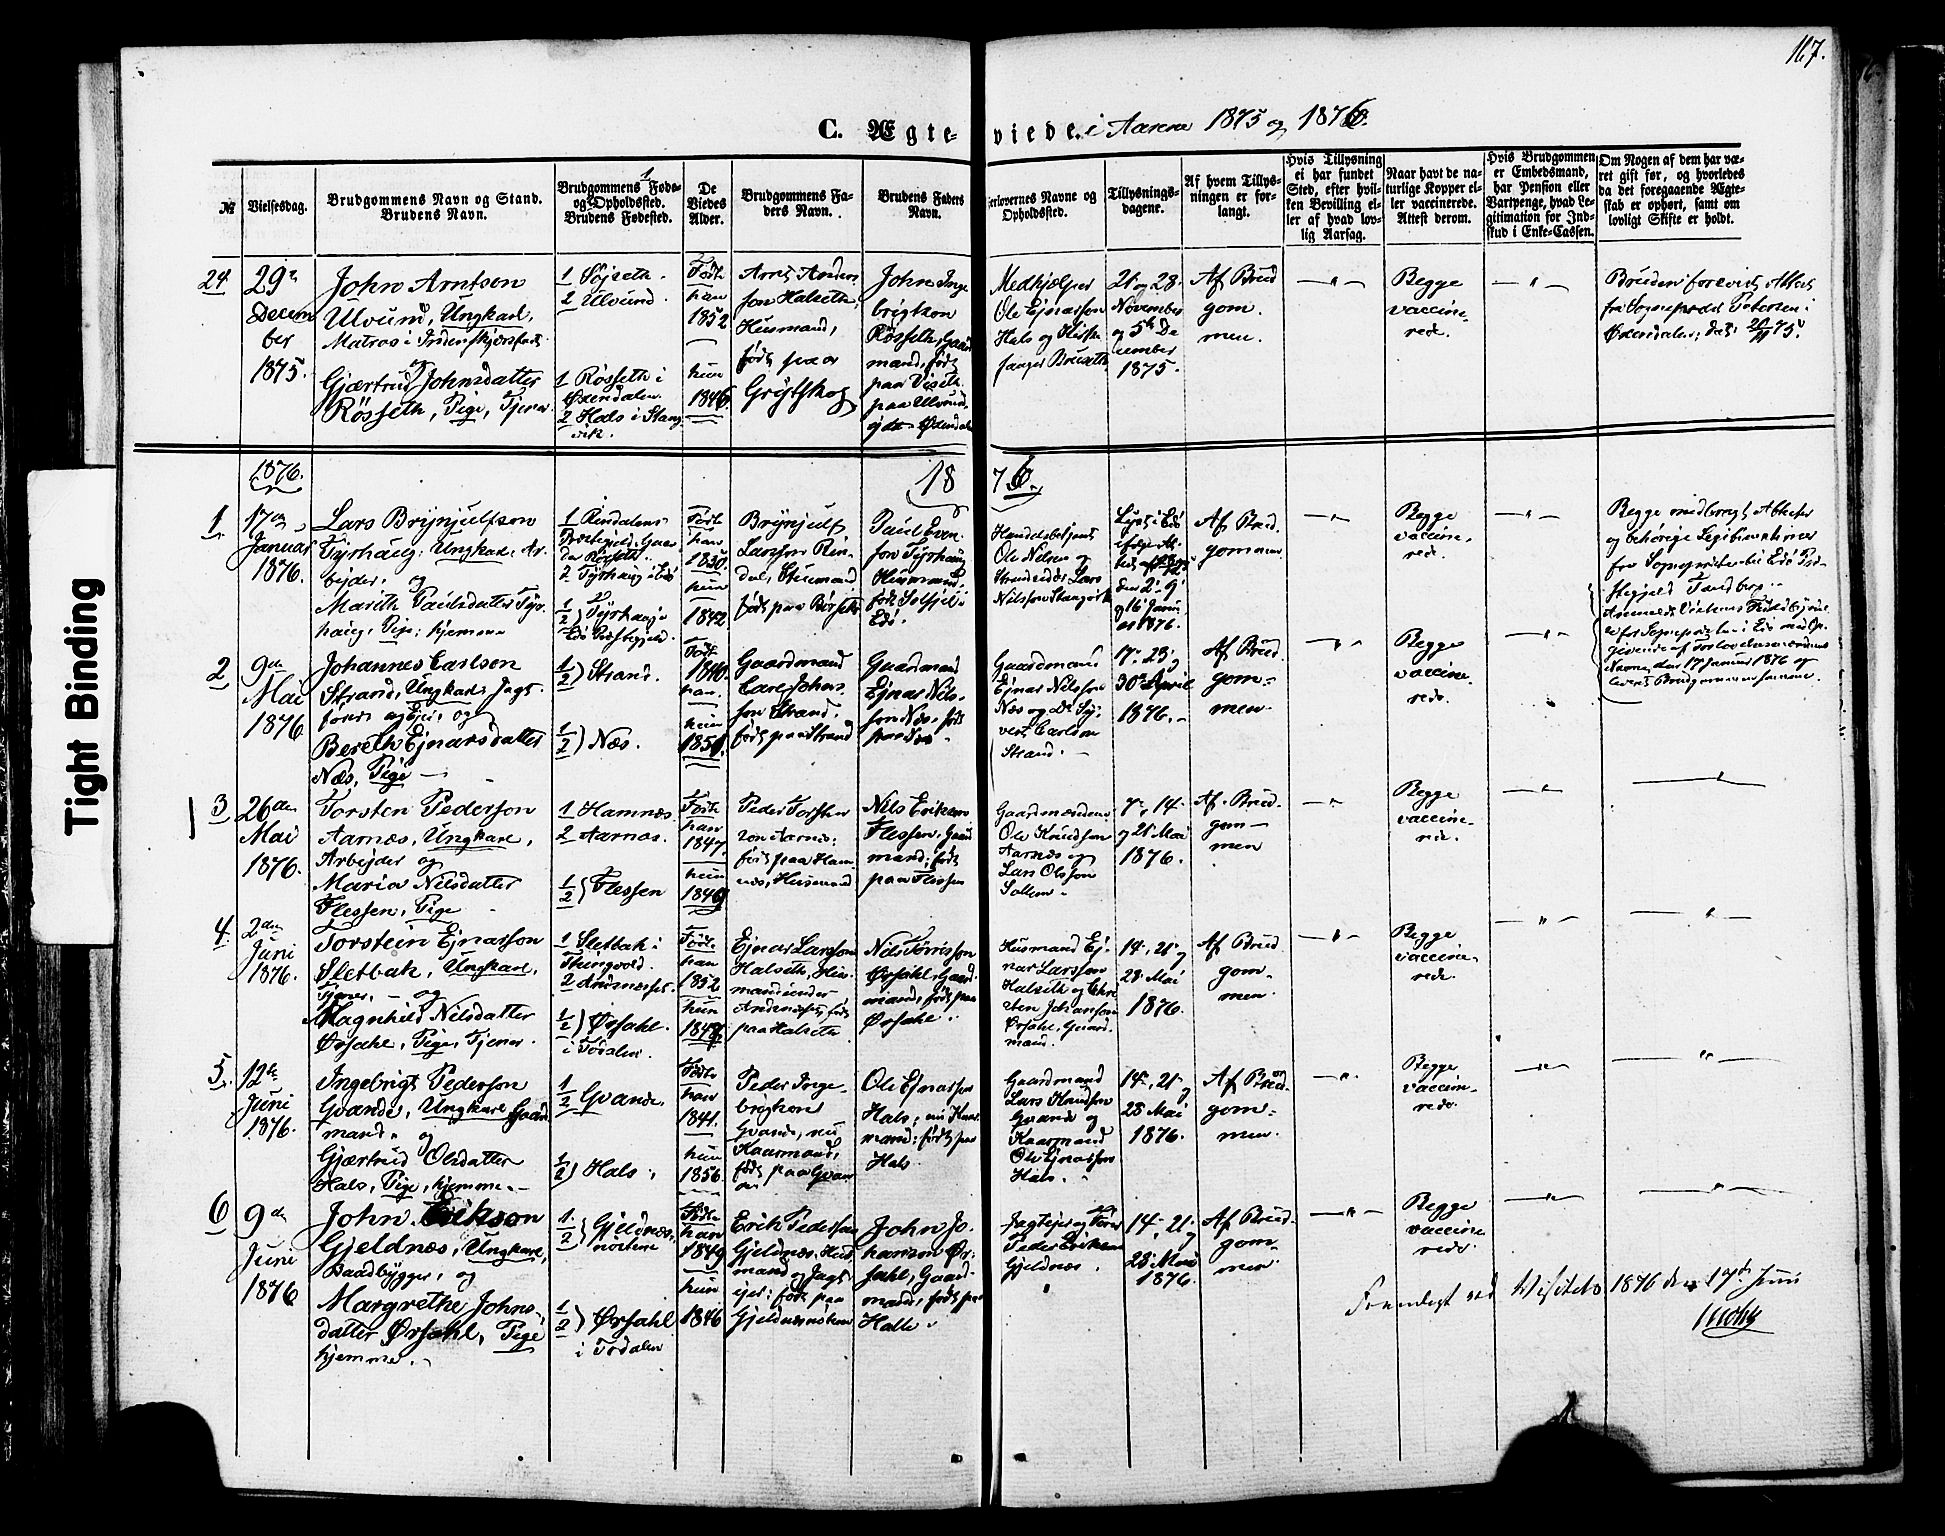 167.
C. Ægte-viede i Aarene 1875 og 1876.
Tight Binding
№
Vielsesdag.
Brudgommens Navn og Stand.
Brudens Navn.
Brudgommens Føde-
og Opholdssted.
Brudens Fødested.
De
Viedes
Alder.
Brudgommens Fa-
ders Navn.
Brudens Faders
Navn.
Forlovernes Navne og
Opholdssted.
Tillysnings-
dagene.
Af hvem Tillys-
ningen er for-
langt.
Hvis Tillysning
ei har fundet
Sted, efter hvil-
ken Bevilling el-
ler af hvad lov-
lig Aarsag.
Naar havt de na-
turlige Kopper el-
ler vaccinerede.
Attest derom.
Hvis Brudgommen
er Embedsmand,
har Pension eller
Vartpenge, hvad Le-
gitimation for Ind-
skud i Enke-Cassen.
Om Nogen af dem har væ-
ret gift før, og hvorledes
da det foregaaende Ægte-
skab er ophørt, samt om
lovligt Skifte er holdt.
24.
29de
Decem
ber
1875.
John Arntson
Ulvund, Ungkarl,
Matros i
og
Gjærtrud Johnsdatter
Røsseth, Pige, Tjener
1 Søjseth.
2 Ulvund.
1 Røsseth i
Øxendalen
2 Hals i Stang
vik.
Født
han
1852
hun
1846.
Arnt Anders
son Halseth,
Husmand,
født paa
Grøtskog
John Inge
brigtson
Røsseth, Gaard
mand, født
paa Viseth
paa Ulvund,
Øxendal
Medhjelper
Ole Ejnarsson
Hals og
21 og 28.
November
og 5te De
cember
1875.
Af Brud
gom.
men.
Begge
vaccine-
rede.
Bruden forevist Attest
fra Sogneprest Petersen i
Øxendalen, dat.
1876.
1876.
1.
17de
Januar
1876.
Lars Brynjulfson
Tyrhaug, Ungkarl, Ar-
bejder,
og
Marith Paulsdatter Tyr-
haug, Pige, hjemme
1 Rindalens
Præstegjeld, Gaar
den
2 Tyrhaug i Edø
1/2) Tyrhaug i
Edø Præstegjeld.
Født
han
1850.
hun
1842
Brynjulf
Larsson Rin-
dal, Husmand
født paa
Paul Even
son Tyrhaug
Husmand,
født
Edø.
Handelsbetjent
Ole Nilsen og
Lars
Nilsson Stangvik
Lyst i Edø
den 2. 9
og 16 Janu
ar 1876.
Af Brud
gommen
Begge
vaccine-
rede.
Begge medbragt Attester
og behørige Legitimationer
fra Sognepresten i Edø Præ-
stegjeld Sandberg.
Anmeldt Vielsens
for Sognepresten i Edø med Op-
givende af Forlovelsesmændenes
Navne, den 17 Januar 1876 og
leveret Brudgommen samme.
2
9de
Mai
1876
Johannes Carlson
Strand, Ungkarl, Jagt-
fører og Ejer, og
Bereth Ejnarsdatter
Næs, Pige
1/2) Strand.
1/2) Næs.
Født
1840.
han.
hun
1851.
Gaardmand
Carl Johan
son Strand,
født paa Strand
Gaardmand
Ejnar Nils-
son Næs, født
paa Næs
Gaardmænd
Ejnar Nilsson
Næs og Sy-
vert Carlson
Strand.
17. 23 og
30te April
1876.
Af Brud
gom-
men.
Begge
vaccine-
rede.
3
26de
Mai
1876.
Torsten Pederson
Aarnæs, Ungkarl,
Arbejder og
Maria Nilsdatter
Flessen, Pige
1 Hamnæs
2 Aarnæs.
1/2) Flessen
Født
han
1847.
hun
1849
Peder Torsten
son Aarnæs,
født paa Ham
næs, Husmand
Nils Eriksen
Flessen, Gaard
mand, født
paa Flessen
Gaardmændene
Ole Knudsen
Aarnæs og
Lars Olsson
Sollem.
7. 14.
og 21 Mai
1876.
Af Brud-
gom-
men
Begge
vaccine-
rede.
4.
2den
Juni
1876.
Torstein Ejnarsson
Sletbak, Ungkarl,
Tjener, og
Magnhild Nilsdatter
Ørsahl, Pige, Tjener.
1 Sletbak i
Thingvold.
2
1/2) Ørsahl.
i Todalen.
Født
han
1852
hun
Ejnar Larsson
Halseth, Hus-
mand under
født
paa Halseth
Nils Torrisson
Ørsahl, Gaard-
mand, født paa
Ørsahl.
Husmand Ej-
nar Larsson
Halseth og Chri
sten Johansson
Ørsahl, Gaard-
mand.
14. 21. og
28 Mai
1876.
Af Brud
gom-
men.
Begge
vaccine-
rede.
5.
12te
Juni
1876.
Ingebrigt Pederson
Qvande, Ungkarl Gaard
mand. og
Gjærtrud Olsdatter
Hals, Pige, hjemme.
1/2 Qvande.
1/2) Hals.
Født
han
1841.
hun
1856.
Peder Inge-
brigtson
Qvande, nu
Kaarmand,
født paa Qvan
de
Ole Ejnarsson
Hals, nu Kaar
mand, født paa
Hals.
Gaardmand
Lars Knudson
Qvande og
Kaarmand
Ole Ejnarsson
Hals.
14. 21. og
28 Mai
1876.
Af Brud-
gom-
men.
Begge
vaccine-
rede.
6
9de
Juni
1876
John Erikson
Gjeldnæs, Ungkarl,
Baadbygger, og
Margrethe Johns-
datter Ørsahl, Pige
hjemme.
1/2) Gjeldnæs-
nøstene
1/2) Ørsahl
i Todalen
Født
han
1849
hun
1846
Erik Pederson
Gjeldnæs, Hus
mand og Jagt-
ejer, født paa
Gjeldnæsnøstene
John Jo-
hanson Ør-
sahl, Gaard-
mand, født paa
Halle.
Jagtejer og Fører
Peder Eriksen
Gjeldnæs.
14. 21. og
28 Mai
1876.
Af Brud-
gom-
men.
Begge
vaccine
rede.
Fremlagt ved Visitats 1876 den 17de Juni